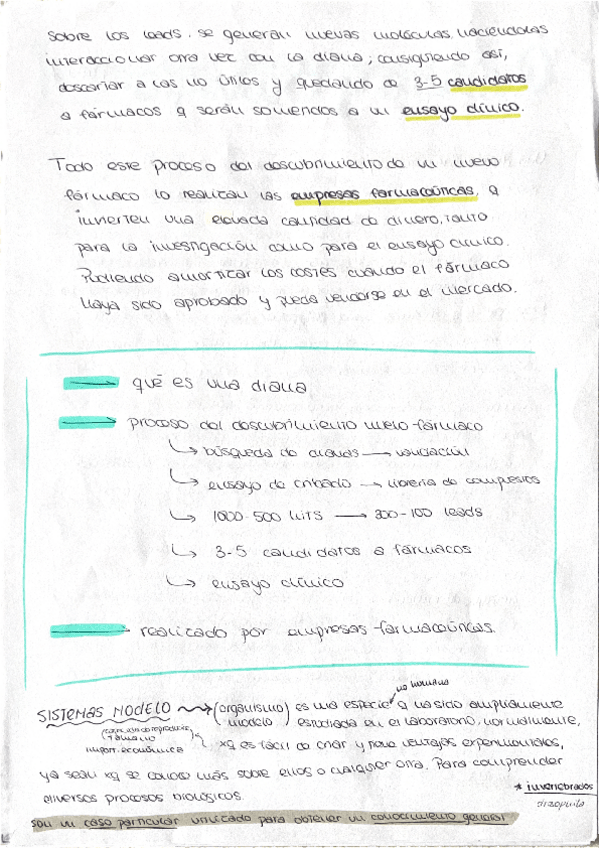 sobre los leads. se generan nuevas moléculas, haciéndolas
interaccionar otra vez con la diana; consiguiendo así,
descartar a las no útiles y quedando de 3-5 candidatos
a fármacos q serán sometidos a un ensayo clínico.
Todo este proceso del descubrimiento de un nuevo
fármaco lo realizan las empresas farmacéuticas, q
invierten una elevada cantidad de dinero, tanto
para la investigación como para el ensayo clínico.
Pudiendo amortizar los costes cuando el fármaco
haya sido aprobado y pueda venderse en el mercado.
→ qué es una diana
→ proceso del descubrimiento nuevo fármaco
↳ búsqueda de dianas → validación
↳ ensayo de cribado → librería de compuestos
↳ 1000-500 hits → 200-100 leads
↳ 3-5 candidatos a fármacos
↳ ensayo clínico
→ realizado por empresas farmacéuticas.
no humana
SISTEMAS MODELO → (organismo modelo) es una especie q ha sido ampliamente
estudiada en el laboratorio, normalmente,
tamaño
import. económica
xq es fácil de criar y tiene ventajas experimentales,
ya sean xq se conoce más sobre ellos o cualquier otra. Para comprender
diversos procesos biológicos.
* invertebrados
son un caso particular utilizado para obtener un conocimiento general